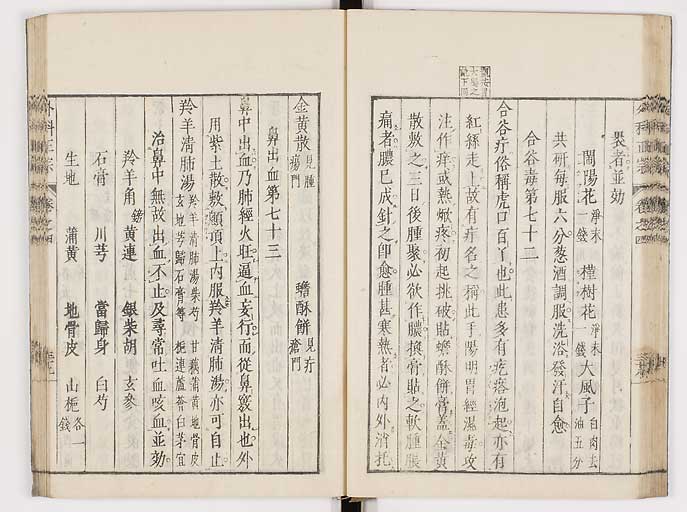 裂者並効
鬧陽花 淨末一錢 槿樹花 淨末一錢 大風子 白肉去油五分
共研每服六分葱酒調服洗浴發汗自愈
合谷毒第七十二
合谷疔俗稱虎口百丫也此患多有疙瘩泡起亦有
紅絲走上故有疔名之稱此手陽明胃經濕毒攻
注作痒或熱焮疼初起挑破貼蟾酥餅膏蓋金黃
散敷之三日後腫聚必欲作膿換膏貼之軟腫脹
痛者膿已成針之即愈腫甚寒熱者必內外消托
金黃散 見腫瘍門 蟾酥餅 見疔瘡門
鼻出血第七十三
鼻中出血乃肺經火旺逼血妄行而從鼻竅出也外
用紫土散敷顖頂上內服羚羊清肺湯亦可自止
羚羊清肺湯 羚羊清肺湯柴芍 玄地芩歸石膏等 甘藕蒲黃地骨皮 梔連蘆薈白茅宜
治鼻中無故出血不止及尋常吐血咳血並効
羚羊角 鎊 黃連 銀柴胡 玄參
石膏 川芎 當歸身 白芍
生地 蒲黃 地骨皮 山梔 各一錢
外科正宗 卷之四